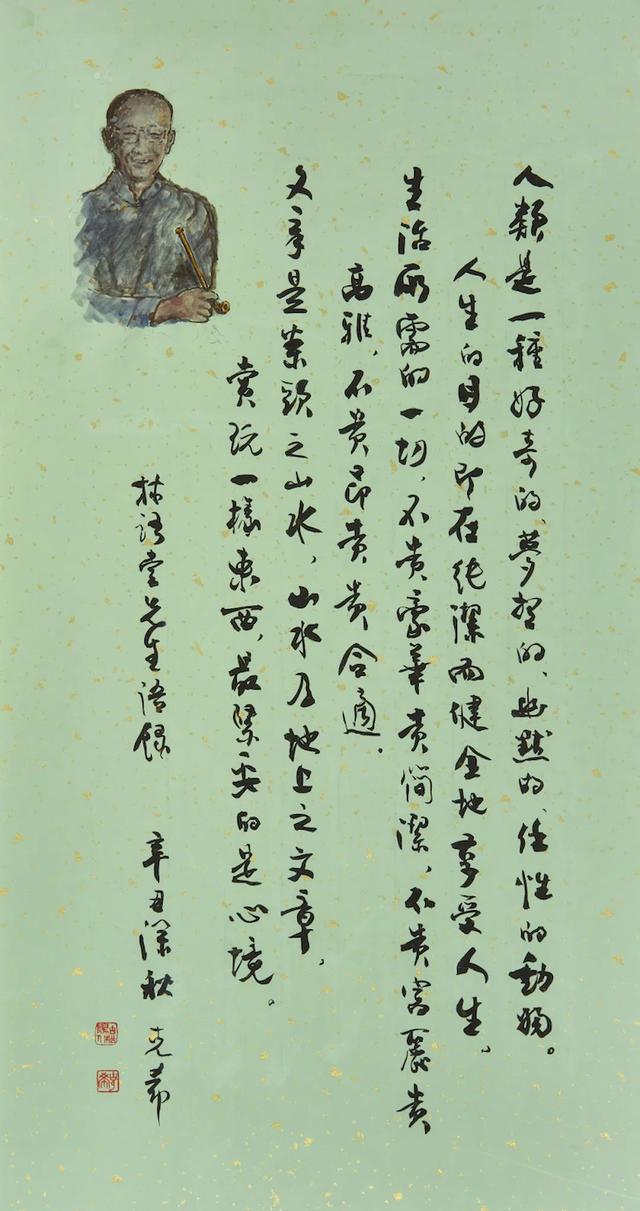 人類是一種好奇的、夢想的、幽默的、任性的動物。
人生的目的即在純潔而健全地享受人生、
生活所需的一切,不貴豪華貴簡潔,不貴富麗貴
高雅,不貴昂貴貴合適。
文章是案頭之山水,山水乃地上之文章,
賞玩一樣東西,最緊要的是心境。
林語堂先生語錄 辛丑深秋 克希